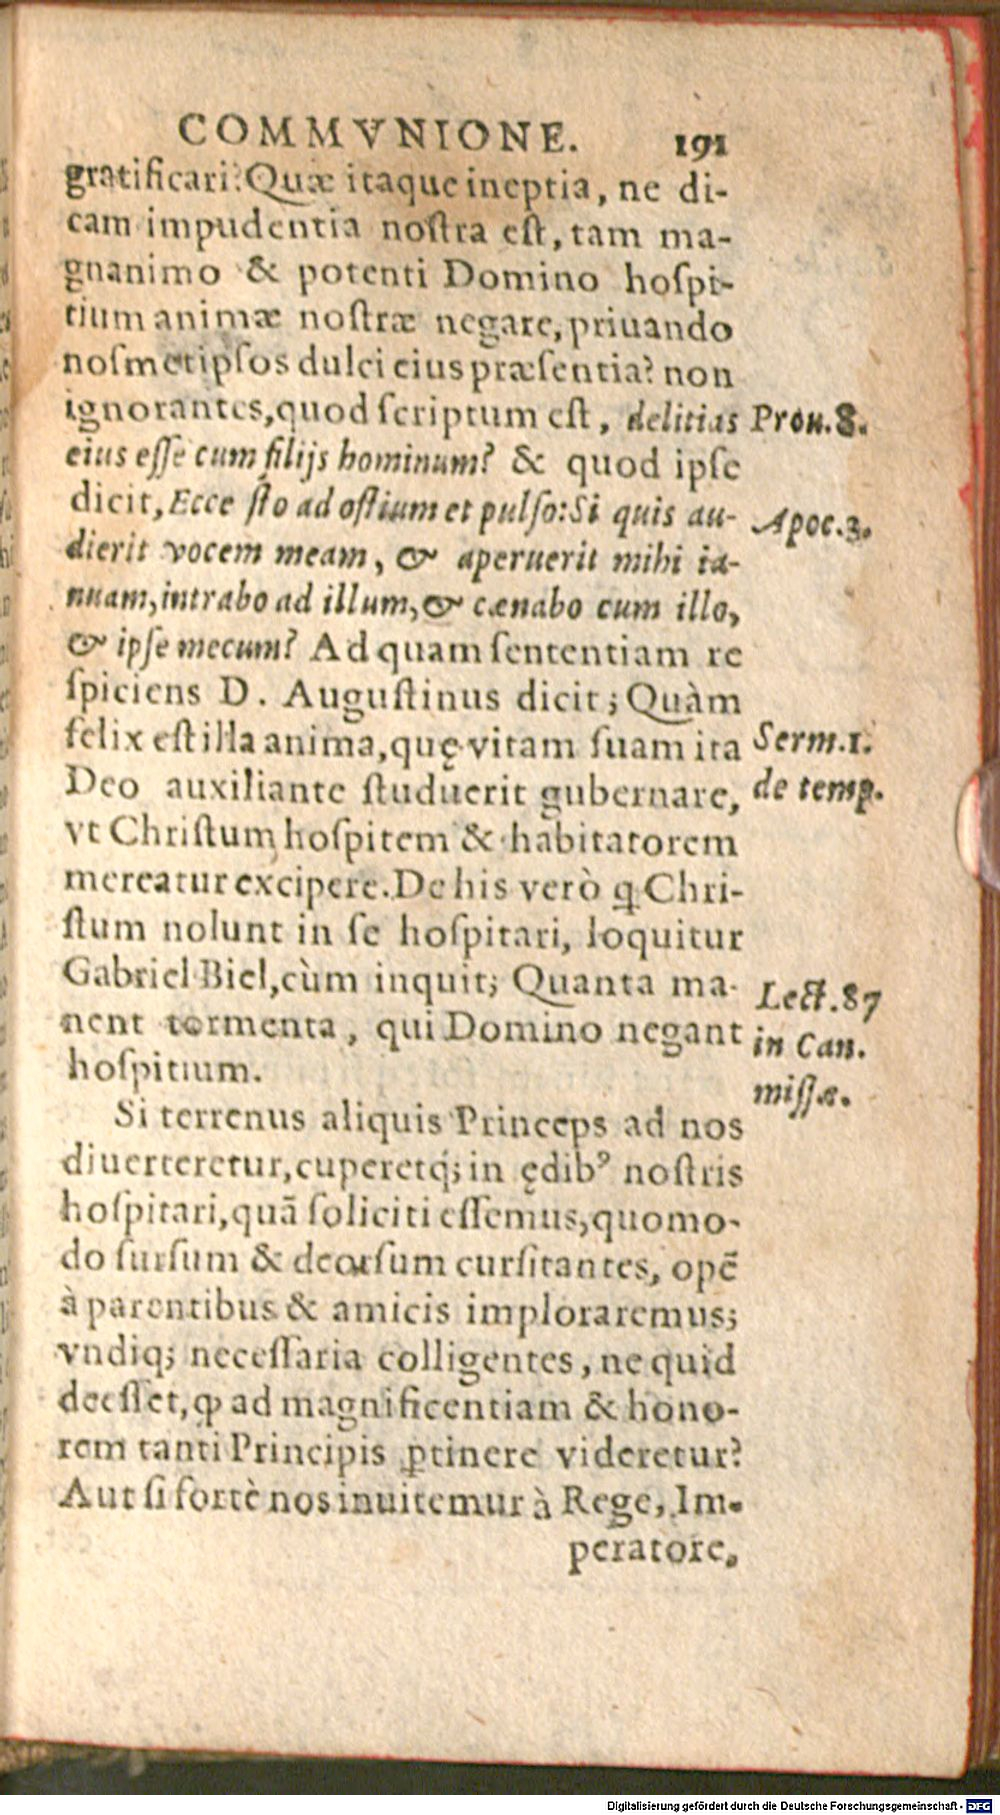 COMMVNIONE. 191
gratificari? Quæ itaque ineptia, ne di-
cam impudentia noſtra eſt, tam ma-
gnanimo & potenti Domino hoſpi-
tium animæ noſtræ negare, priuando
noſmetipſos dulci eius præſentia? non
ignorantes, quod ſcriptum eſt, delitias Prou.8.
eius eſſe cum filijs hominum? & quod ipſe
dicit, Ecce ſto ad oſtium et pulſo: Si quis au- Apoc.3.
dierit vocem meam, & aperuerit mihi ia-
nuam, intrabo ad illum, & cænabo cum illo,
& ipſe mecum? Ad quam ſententiam re
ſpiciens D. Auguſtinus dicit; Quàm
felix eſt illa anima, quę vitam ſuam ita Serm.1.
Deo auxiliante ſtuduerit gubernare, de temp.
vt Chriſtum hoſpitem & habitatorem
mereatur excipere. De his verò ꝗ Chri-
ſtum nolunt in ſe hoſpitari, loquitur
Gabriel Biel, cùm inquit; Quanta ma- Lect.87
nent tormenta, qui Domino negant in Can.
hoſpitium. miſſæ.
Si terrenus aliquis Princeps ad nos
diuerteretur, cuperetq́; in ędibꝰ noſtris
hoſpitari, quā ſoliciti eſſemus, quomo-
do ſurſum & deorſum curſitantes, opē
à parentibus & amicis imploraremus;
vndiq; neceſſaria colligentes, ne quid
deeſſet, ꝙ ad magnificentiam & hono-
rem tanti Principis ꝑtinere videretur?
Aut ſi fortè nos inuitemur à Rege, Im-
peratore,
Digitalisierung gefördert durch die Deutsche Forschungsgemeinschaft - DFG